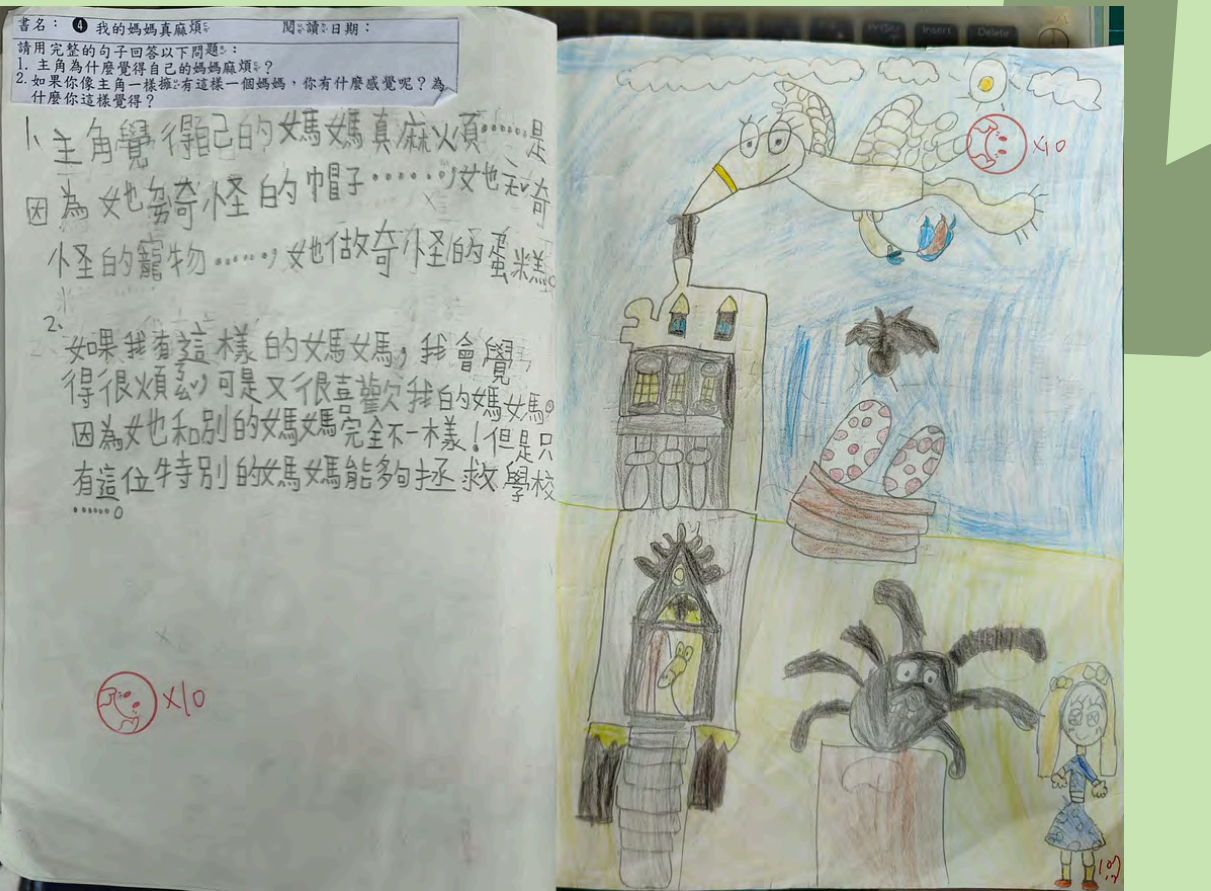 書名： ❹ 我的媽媽真麻煩 閱讀日期：
請用完整的句子回答以下問題：
1. 主角為什麼覺得自己的媽媽麻煩？
2. 如果你像主角一樣擁有這樣一個媽媽，你有什麼感覺呢？為
什麼你這樣覺得？
1、主角覺得自己的媽媽真麻煩……是
因為她戴奇怪的帽子……，她和奇
怪的寵物……，她做奇怪的蛋糕。
2、
如果我有這樣的媽媽，我會覺
得很煩惱，可是又很喜歡我的媽媽。
因為她和別的媽媽完全不一樣！但是只
有這位特別的媽媽能夠拯救學校
……。
x10
x10
Insert
Delete